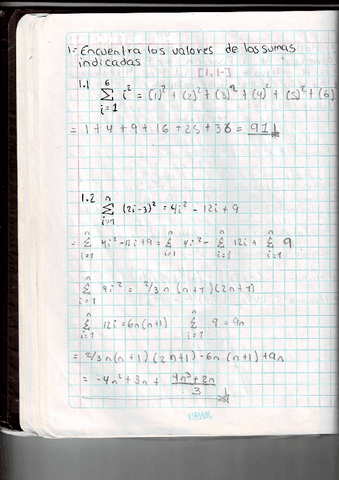 1.- Encuentra los valores de las sumas
indicadas
[1.1-]
1.1 6 Σ i=1 i² = (1)² + (2)² + (3)² + (4)² + (5)² + (6)
= 1 + 4 + 9 + 16 + 25 + 36 = 91
1.2 n Σ i=1 (2i-3)² = 4i² - 12i + 9
= n Σ i=1 4i² - 12i + 9 = n Σ i=1 4i² - n Σ i=1 12i + n Σ i=1 9
n Σ i=1 4i² = 2/3 n (n+1)(2n+1)
n Σ i=1 12i = 6n(n+1) n Σ i=1 9 = 9n
= 2/3 n(n+1)(2n+1) - 6n (n+1) + 9n
= -4n² + 3n + 4n³ + 2n / 3